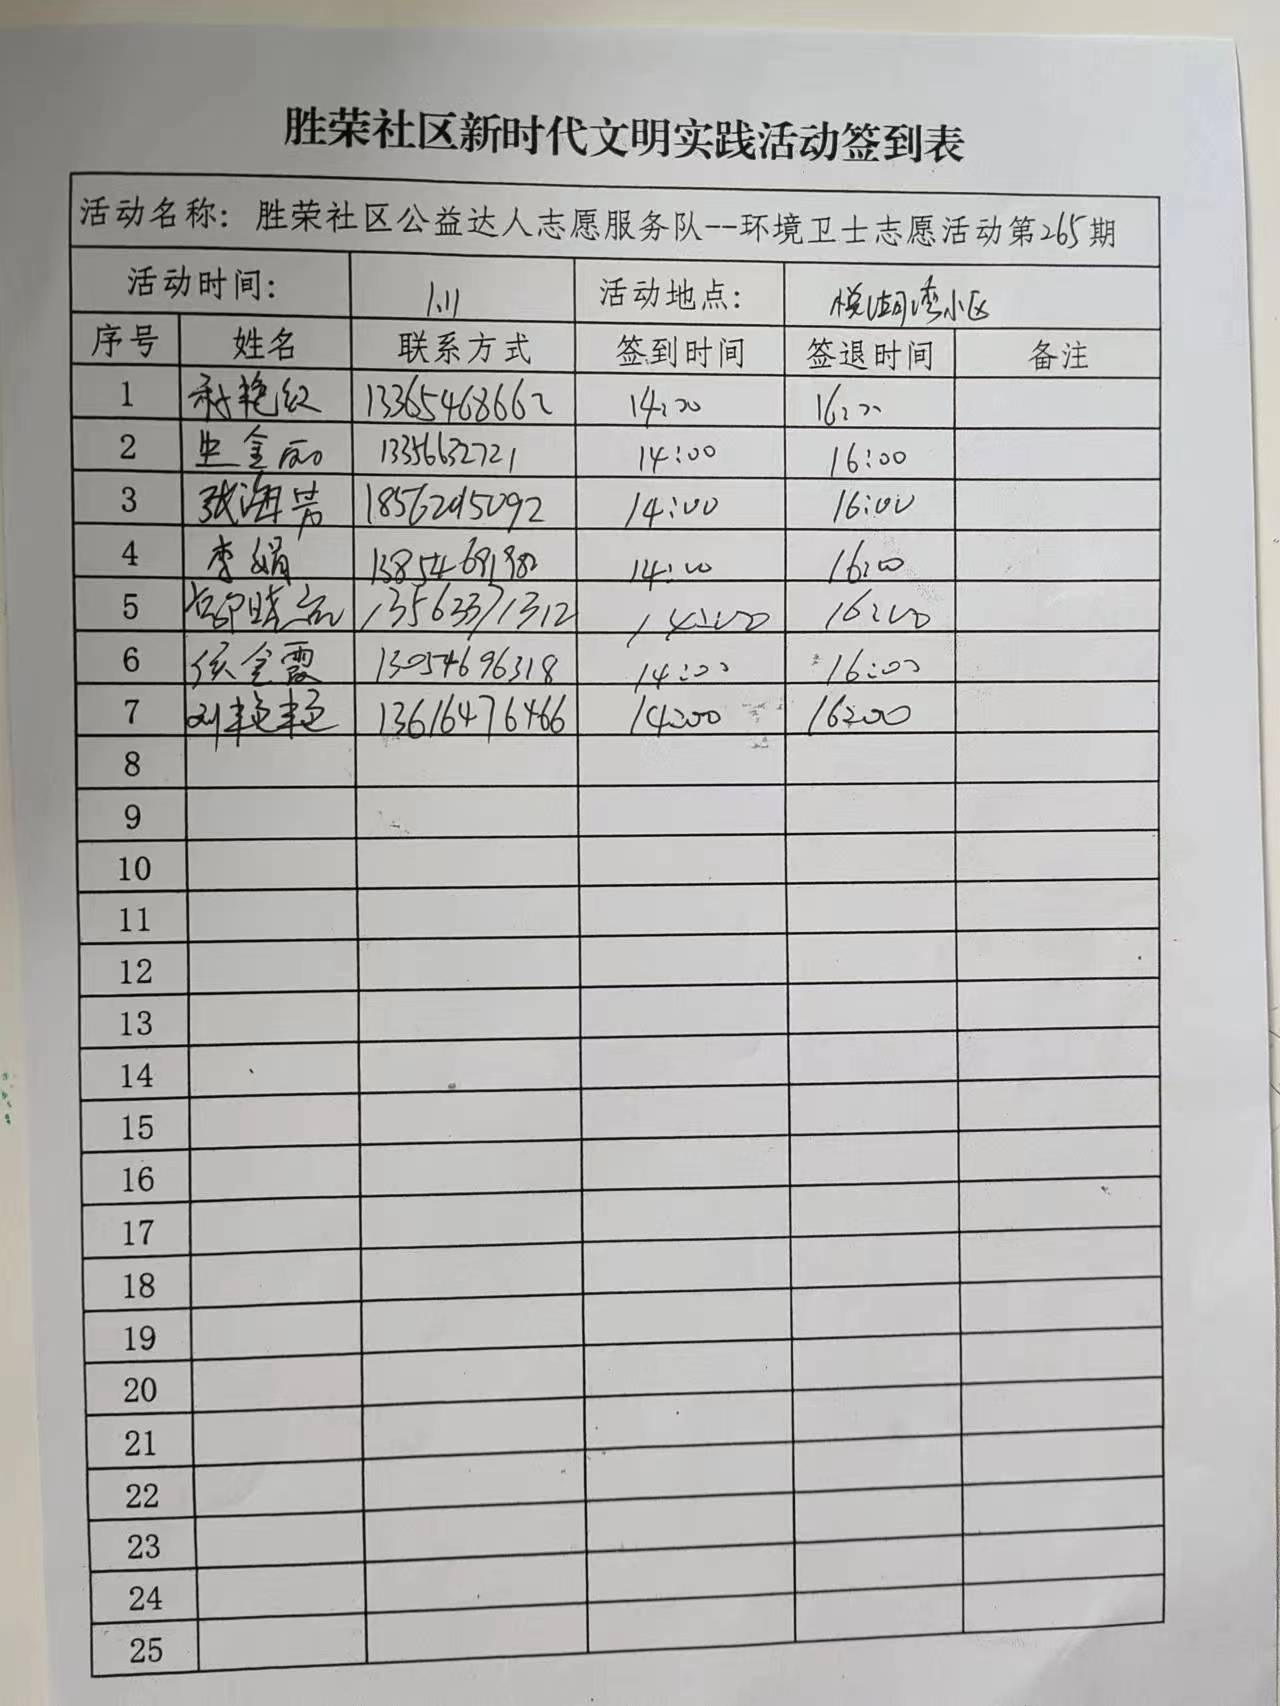 胜荣社区新时代文明实践活动签到表
活动名称：胜荣社区公益达人志愿服务队--环境卫士志愿活动第265期
活动时间： 1.11 活动地点： 悦湖湾小区
序号 姓名 联系方式 签到时间 签退时间 备注
1 艳红 13365468662 14:00 16:00
2 金丽 13356632721 14:00 16:00
3 张海芳 18562015092 14:00 16:00
4 李娟 13854691982 14:00 16:00
5 13563371312 14:00 16:00
6 侯金霞 13054696318 14:00 16:00
7 刘艳艳 13616476466 14:00 16:00
8
9
10
11
12
13
14
15
16
17
18
19
20
21
22
23
24
25